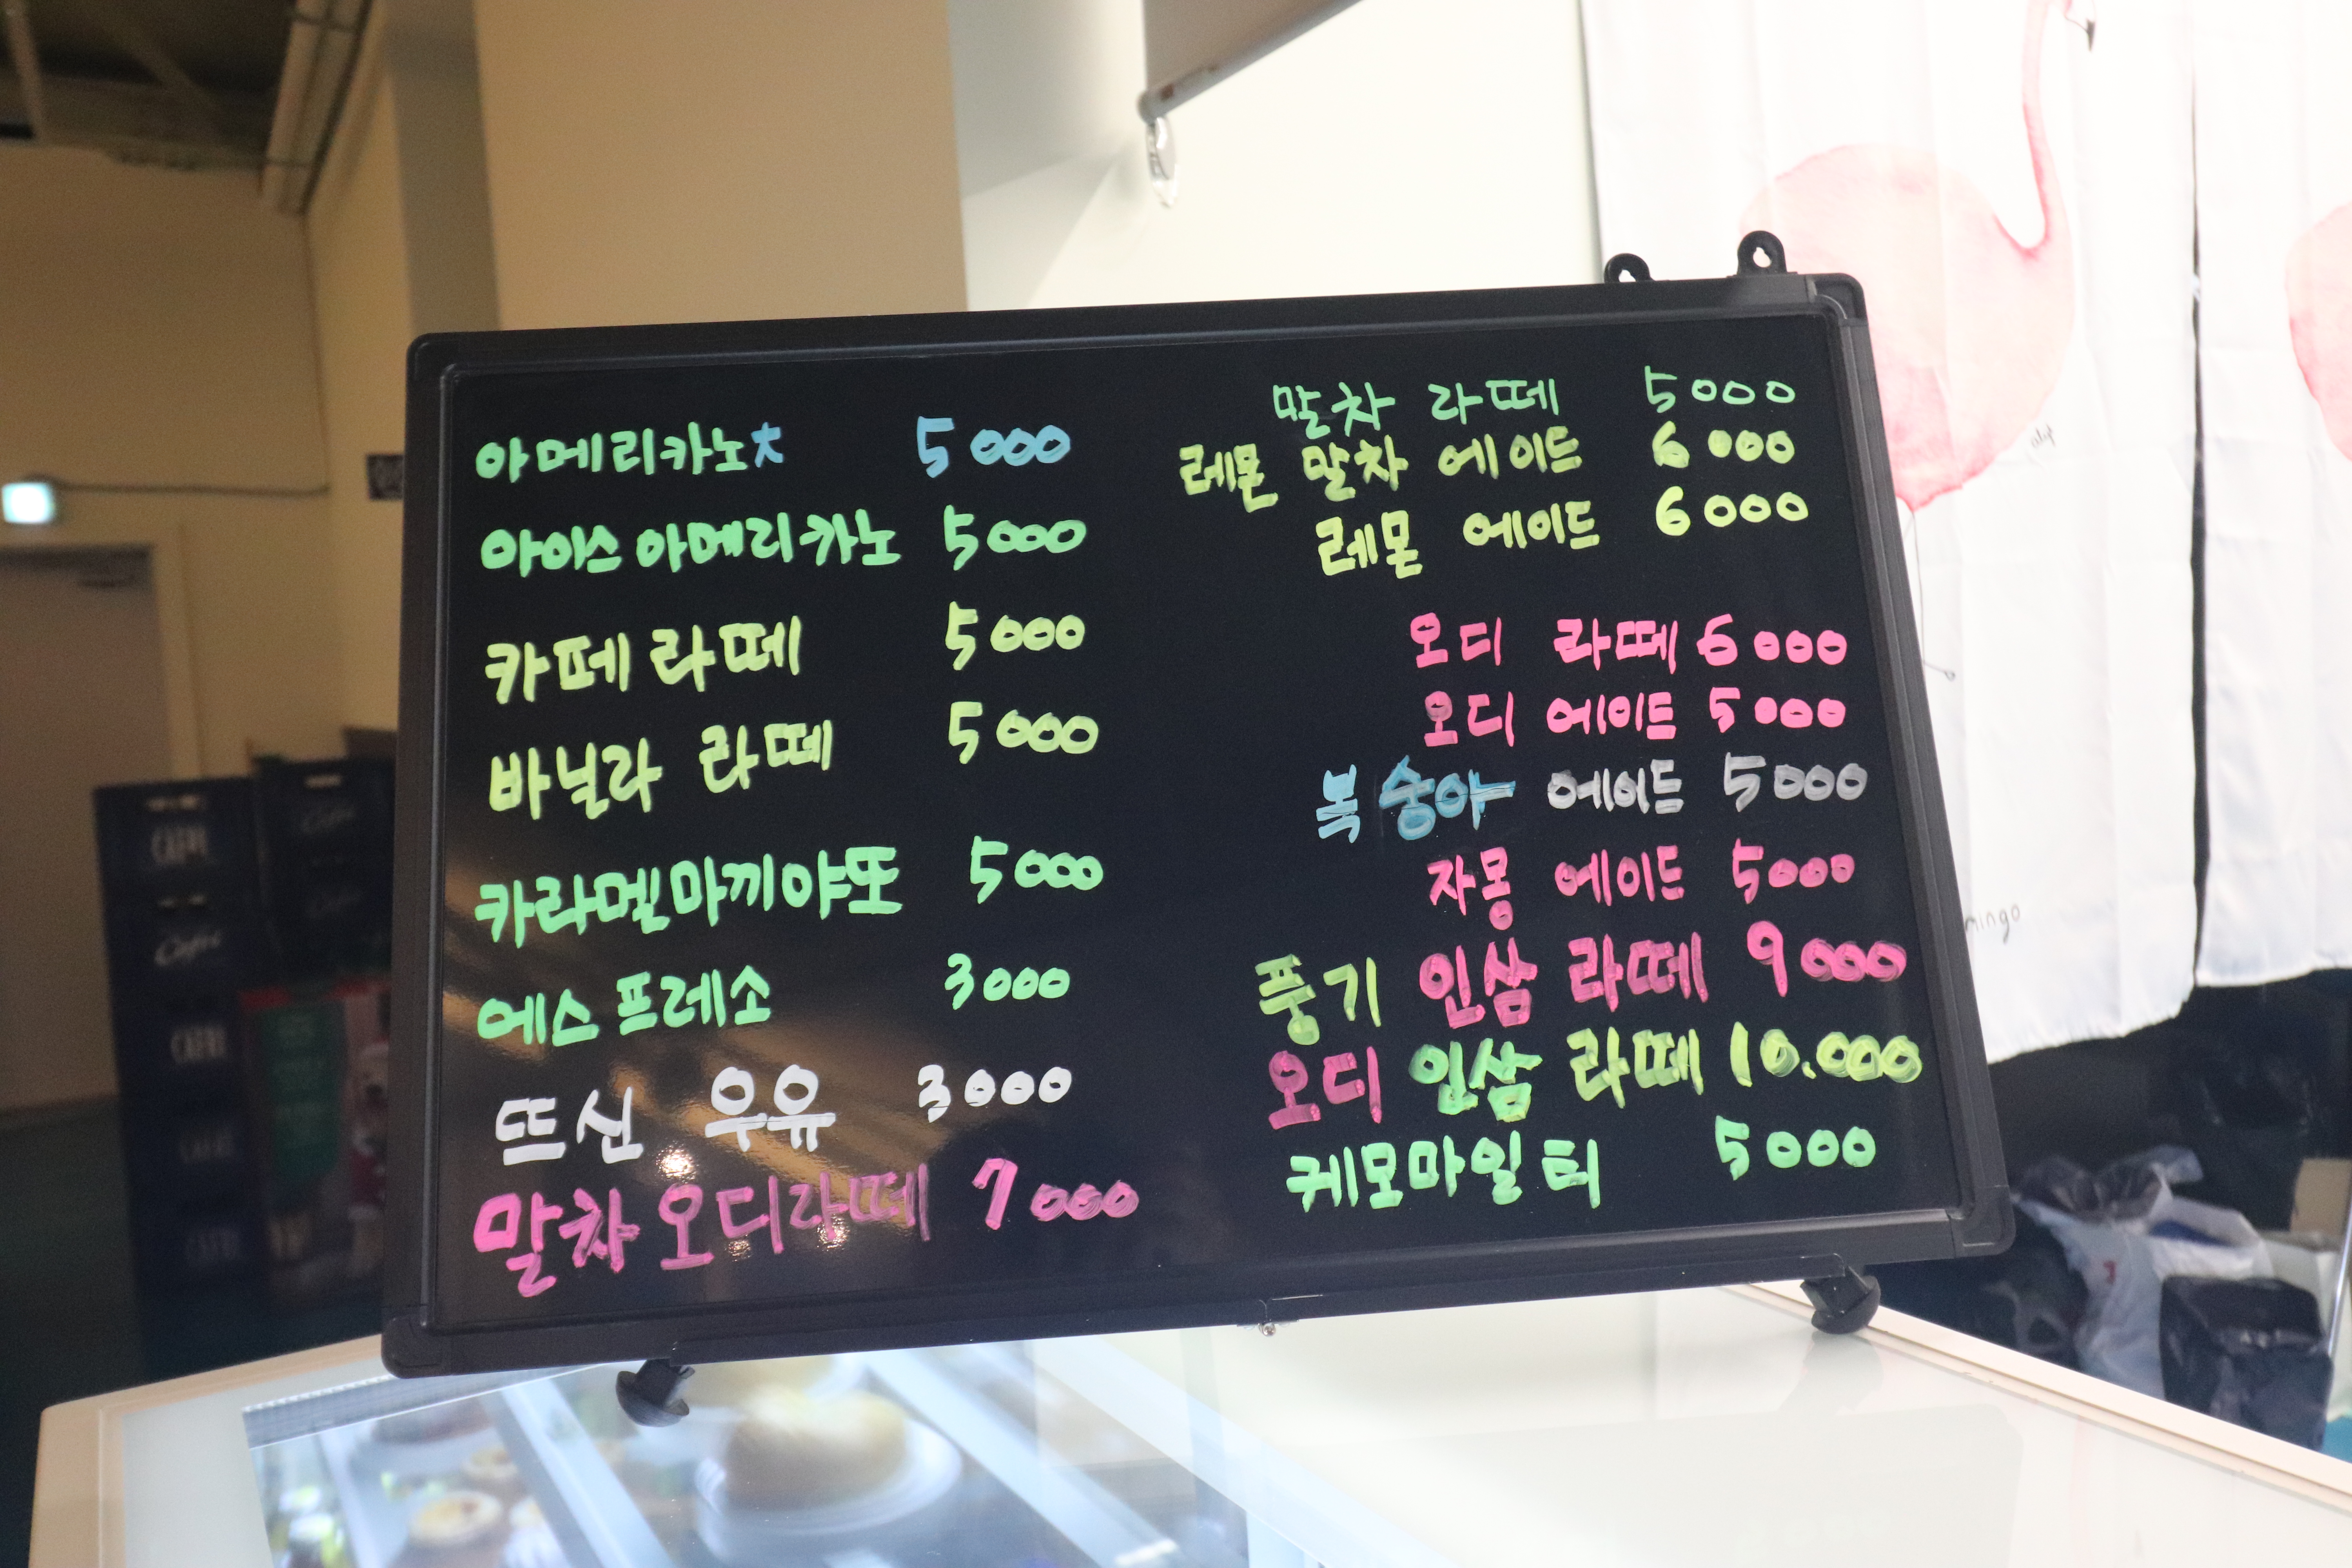 아메리카노大 5000
아이스 아메리카노 5000
카페 라떼 5000
바닐라 라떼 5000
카라멜마끼야또 5000
에스프레소 3000
뜨신 우유 3000
말차오디라떼 7000
말차 라떼 5000
레몬 말차 에이드 6000
레몬 에이드 6000
오디 라떼 6000
오디 에이드 5000
복숭아 에이드 5000
자몽 에이드 5000
풍기 인삼 라떼 9000
오디 인삼 라떼 10.000
케모마일 티 5000